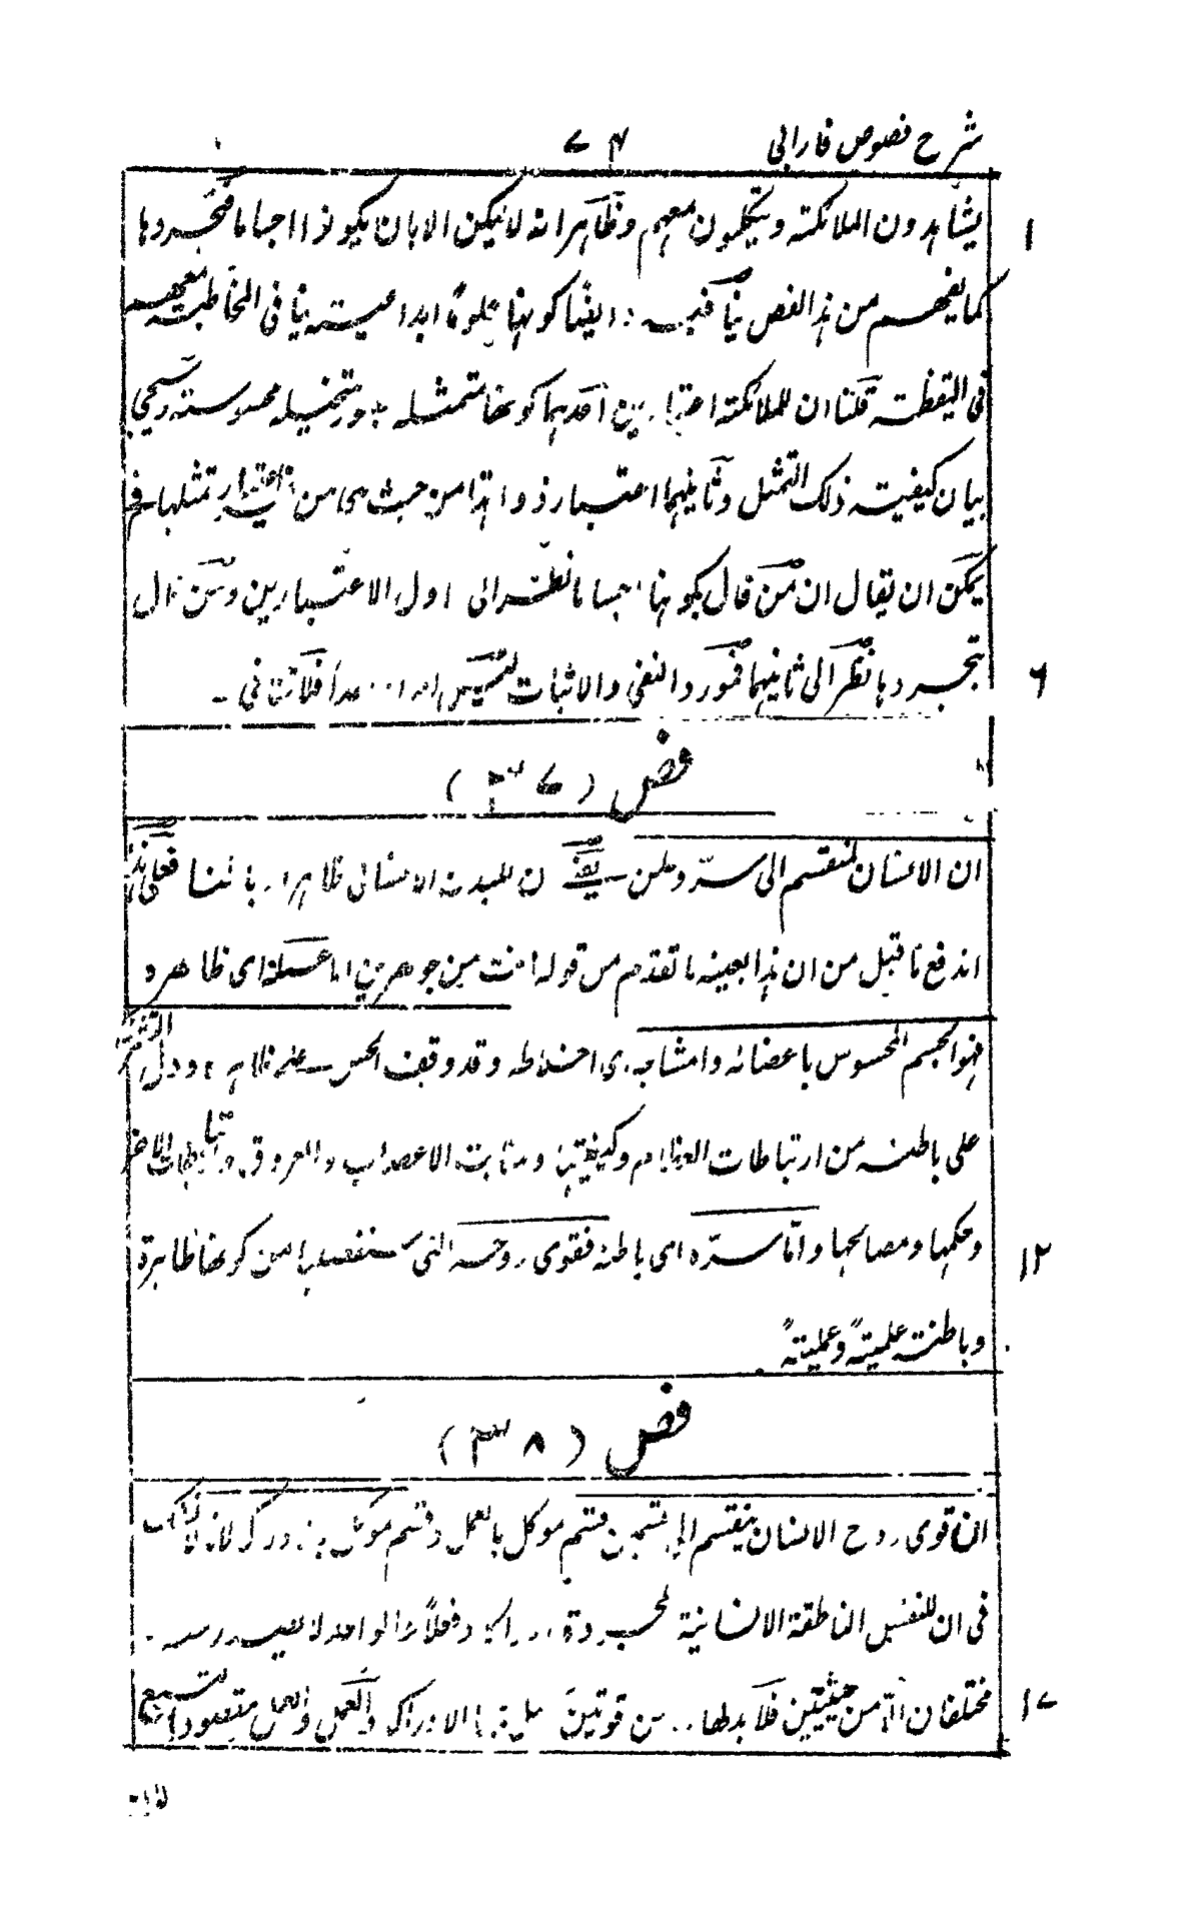 شرح فصوص فارابی ۷۴
يشاهدون الملائكة ويتكلمون معهم وظاهر انه لا يمكن الا بان يكونوا اجساما فتجردها ۱
كما يفهم من هذا الفص ينافيه وايضا كونها علوما ابداعية ينافى المخاطبة معهم
فى اليقظة قلنا ان للملائكة اعتبارين احدهما كونها متمثلة متخيلة محسوسة وسيجئ
بيان كيفية ذلك التمثل وثانيهما اعتبار ذواتها من حيث هى من اعتبار تمثلها فح
يمكن ان يقال ان من قال بكونها اجساما نظر الى اول الاعتبارين ومن قال
بتجردها نظر الى ثانيهما فمورد النفى والاثبات ليس امرا واحدا فلا تنافى - ۶
فص (۳۷)
ان الانسان لمنقسم الى سر وعلن يعنى ان للبدن الانسانى ظاهرا وباطنا فعلى هذا
اندفع ما قيل من ان هذا بعينه ما تقدم من قوله انت من جوهرين اما علنه اى ظاهره
فهو الجسم المحسوس باعضائه وامشاجه اى اخلاطه وقد وقف الحس على ظاهره ودل التشريح
على باطنه من ارتباطات العظام وكيفيتها ومنابت الاعصاب والعروق
وحكمها ومصالحها واما سره اى باطنه فقوى روحه التى سنفصلها من كونها ظاهرة ۱۲
وباطنة علمية وعملية
فص (۳۸)
ان قوى روح الانسان ينقسم الى قسمين قسم موكل بالعمل وقسم موكل بالادراك لانه لا شك
فى ان للنفس الناطقة الانسانية المجردة ادراكا وفعلا والواحد لا يصدر
مختلفان الا من حيثيتين فلا بد لها من قوتين الادراك والعمل والعمل ۱۷